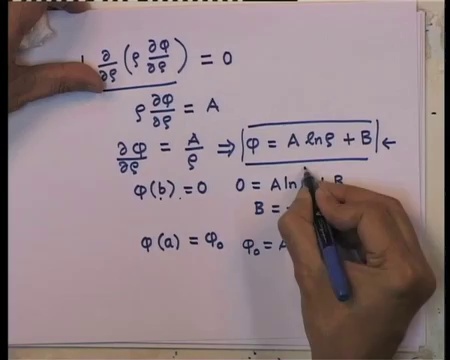 ∂/∂ρ (ρ ∂φ/∂ρ) = 0
ρ ∂φ/∂ρ = A
∂φ/∂ρ = A/ρ ⇒ φ = A lnρ + B ←
φ(b) = 0 0 = A ln + B
B = -
φ(a) = φ₀ φ₀ = A